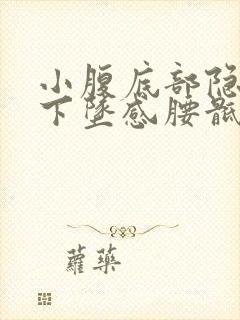 小腹底部隐
下坠感腰骶
蘿藥